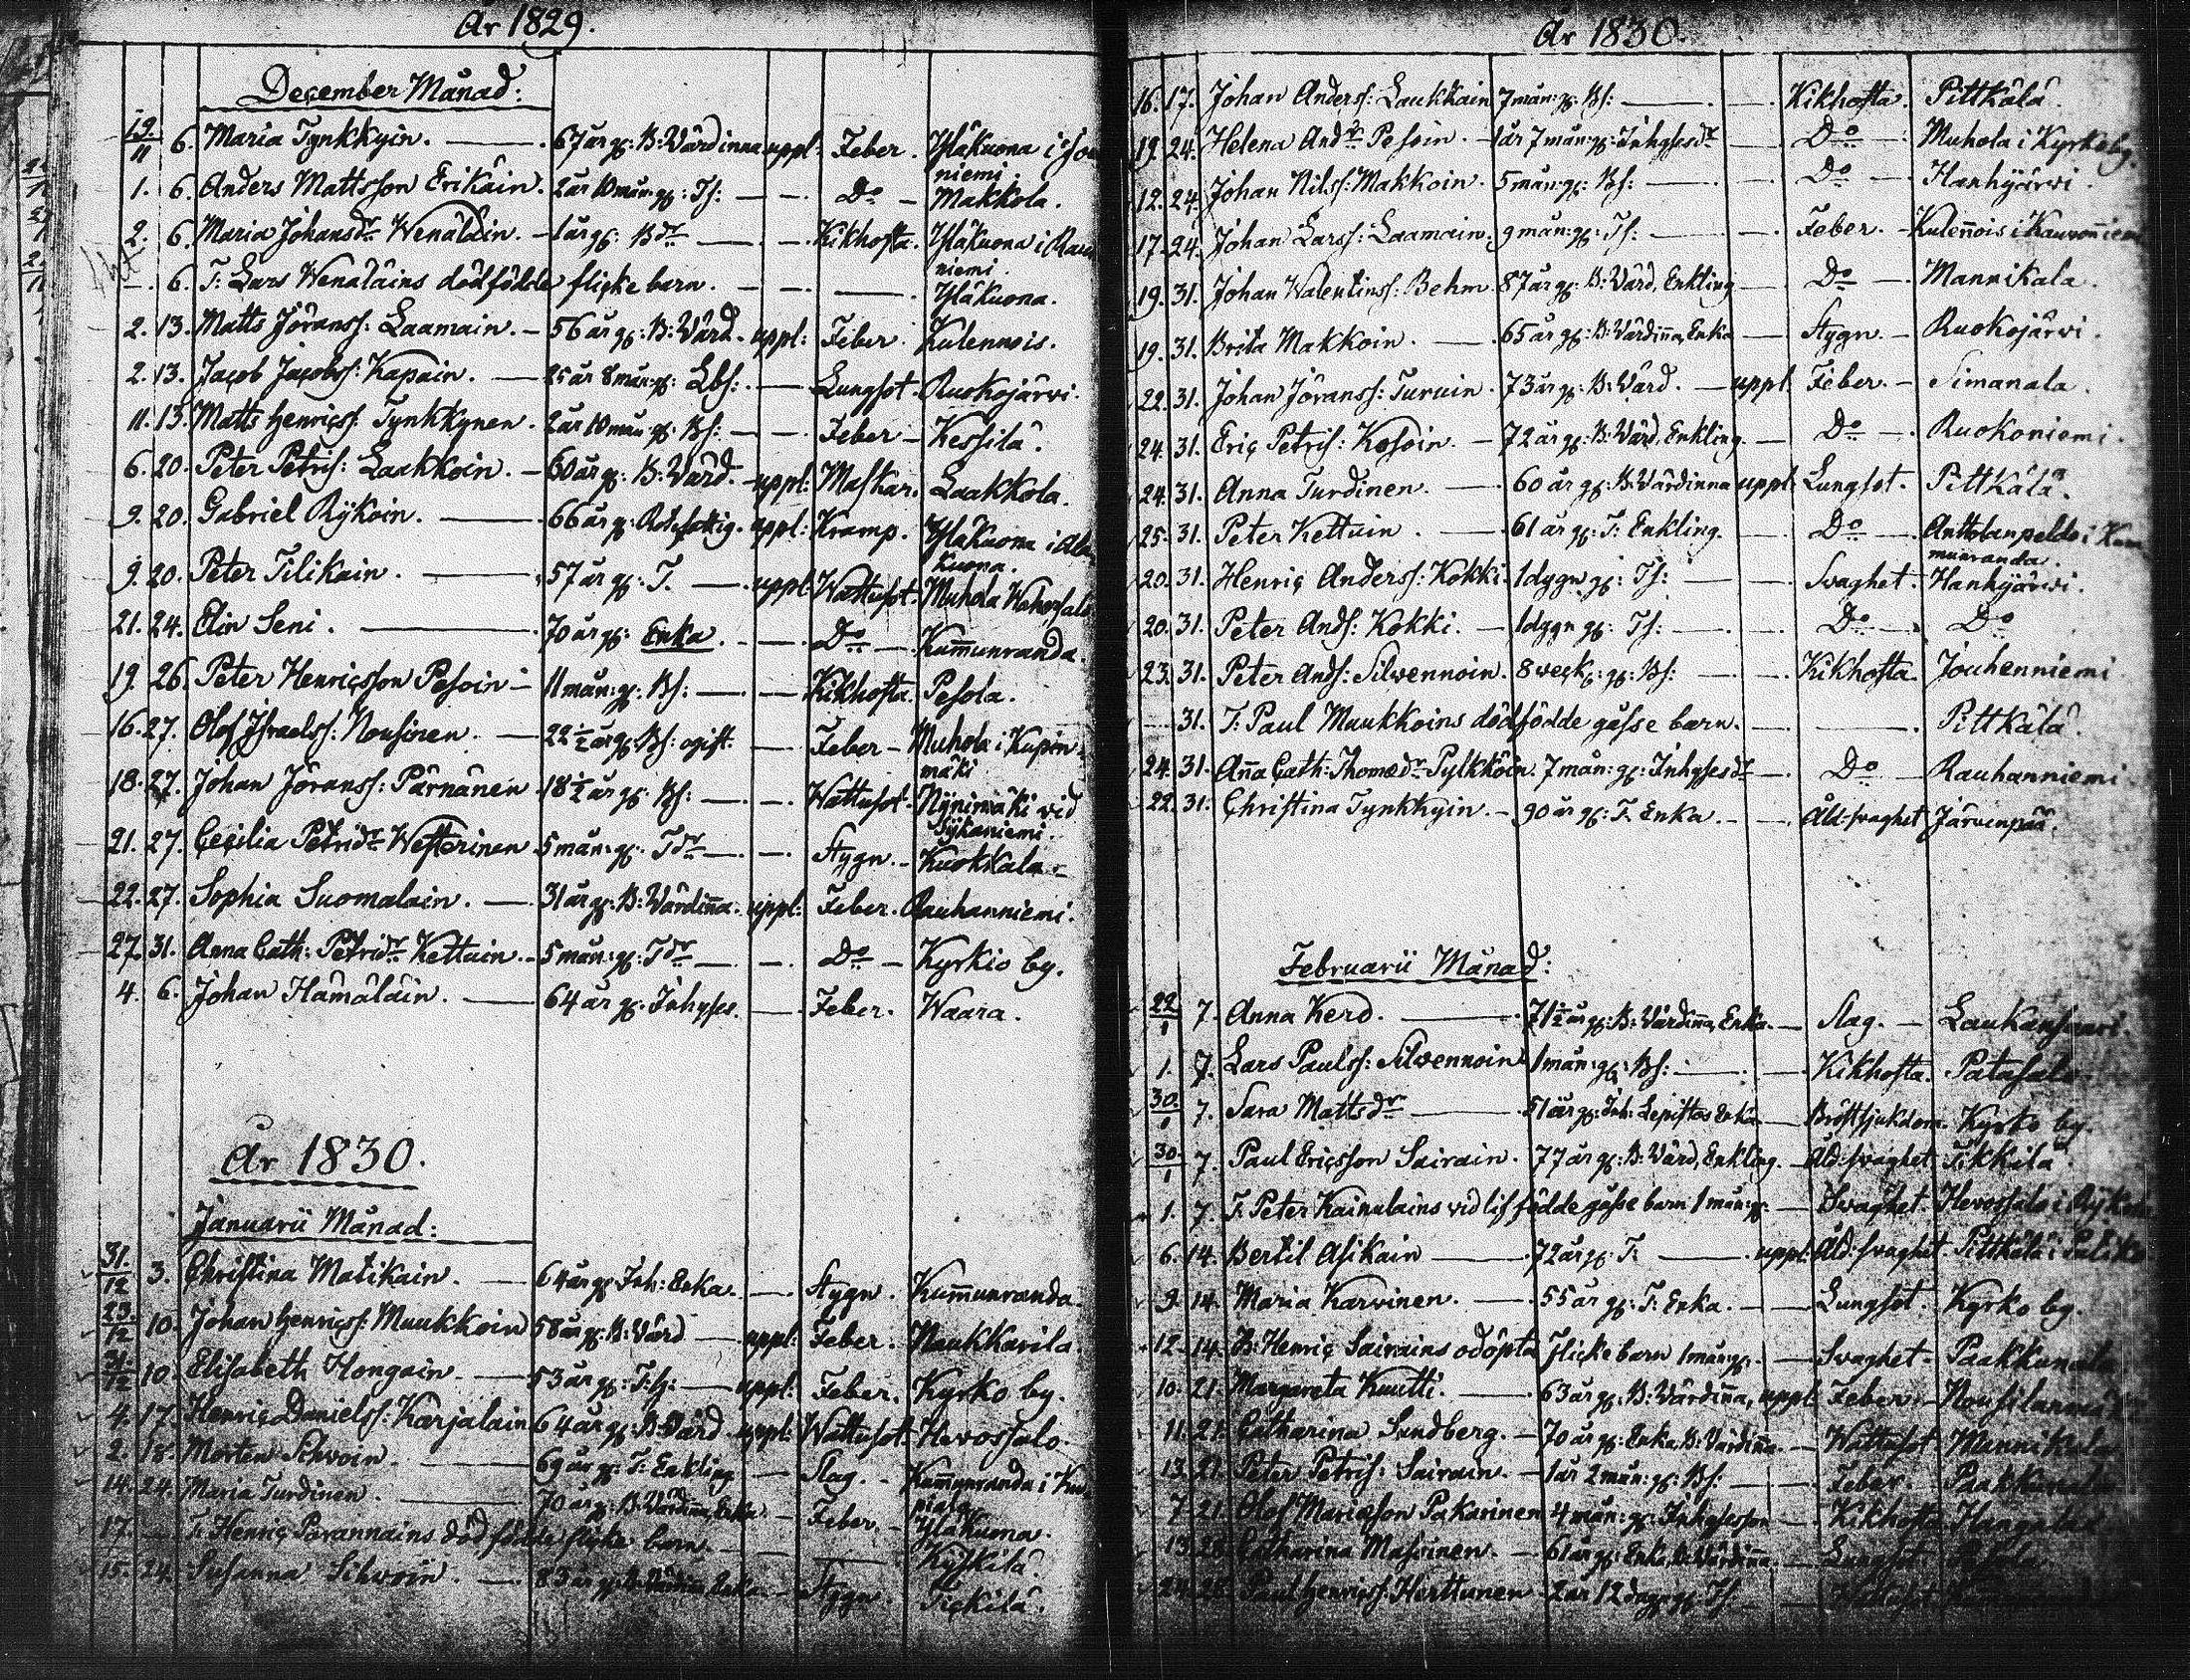 År 1829.
December Månad:
19/11 6. Maria Tynkkyin. 67 år gl: B: Värdinna uppl: Feber. Yläkuona i
niemi.
1. 6. Anders Mattsson Erikäin. 2 år 10 mån: gl: Ts: Do Makkola.
2. 6. Maria Johansdr Wenäläin. 1 år gl: Bdr Kikhosta. Yläkuona i Rau
niemi.
6. T: Lars Wenäläins dödfödde flicke barn. Yläkuona.
2. 13. Matts Jöranss: Laamain. 56 år gl: B: Värd. uppl: Feber. Kulennois.
2. 13. Jacob Jacobss: Kapain. 25 år 8 mån: gl: Lbs: Lungsot. Ruokojärvi.
11. 13. Matts Henricss: Tynkkynen. 2 år 10 mån: gl: Bs: Feber Kessilä.
6. 20. Peter Petris: Laakkoin. 60 år gl: B: Värd. uppl: Maskar. Laakkola.
9. 20. Gabriel Rÿkoin. 66 år gl: Rotefattig. uppl: Kramp. Yläkuona i Ala
Kuona.
9. 20. Peter Tilikain. 57 år gl: T. uppl: Wattusot. Muhola Wehosalo
21. 24. Elin Seni. 70 år gl: Enka. Do Kum̄unranda.
19. 26. Peter Henricsson Pesoin 11 mån: gl: Bs: Kikhosta. Pesola.
16. 27. Olof Israelss: Nousinen. 22 1/2 år gl: Bs: ogift. Feber Muhola i Kupin
mäki
18. 27. Johan Jöranss: Pärnänen 18 1/2 år gl: Bs: Wattusot. Nÿnimäki vid
Sÿkäniemi.
21. 27. Cecilia Petridr Westerinen 5 mån: gl: Tdr Stygn. Kuokkala
22. 27. Sophia Suomalain. 31 år gl: B: Värdin̄a. uppl: Feber. Rauhanniemi.
27. 31. Anna Cath: Petridr Kettuin. 5 mån: gl: Tdr Do Kyrkio by.
4. 6. Johan Hämäläin. 64 år gl: Inhyses. Feber. Waara.
År 1830.
Januarii Månad:
31/12 3. Christina Matikain. 64 år gl: Inh: Enka. Stygn. Kum̄unranda.
23/12 10. Johan Henricss: Muukkoin 58 år gl: B: Värd uppl: Feber. Naukkarila.
31/12 10. Elisabeth Hongain. 53 år gl: T: H: uppl: Feber. Kyrko by.
4. 17. Henric Danielss: Karjalain 64 år gl: B: Värd uppl: Wattusot. Hevossalo.
2. 18. Morten Silwoin. 69 år gl: T: Enkling Slag. Kum̄unranda i
14. 24. Maria Turdinen. 70 år gl: B: Värdin̄a, Enka Feber Yläkuona.
17. T: Henric Parannains död födde flicke barn. Kyskilä.
15. 24. Susanna Silwoin. 83 år gl: B: Värdin̄a Enka Stygn. Tickilä.
År 1830.
16. 17. Johan Anderss: Laukkain 7 mån: gl: Bs: Kikhosta. Pittkälä.
19. 24. Helena Andr Pesoin. 1 år 7 mån: gl: Inhysesdr Do Muhola i Kyrkoby.
12. 24. Johan Nilss: Makkoin. 5 mån: gl: Bs: Do Hanhijärwi.
17. 24. Johan Larss: Laamain. 9 mån: gl: Ts: Feber. Kulen̄ois i
19. 31. Johan Walentinss: Behm 87 år gl: B: Värd, Enkling Do Mannikala.
19. 31. Brita Makkoin. 65 år gl: B: Värdin̄a, Enka Stygn. Ruokojärvi.
22. 31. Johan Jöranss: Turuin. 73 år gl: B: Värd. uppl. Feber. Simanala.
24. 31. Eric Petris: Kosoin. 72 år gl: B: Värd, Enkling. Do Ruokoniemi.
24. 31. Anna Turdinen. 60 år gl: B: Värdinna uppl: Lungsot. Pittkälä.
25. 31. Peter Kettuin. 61 år gl: T: Enkling. Do Anttolanpeldo i Kum
munranda.
20. 31. Henric Anderss: Kokki. 1 dygn gl: Ts: Svaghet. Hanhijärvi.
20. 31. Peter Ands: Kokki. 1 dygn gl: Ts: Do Do
23. 31. Peter Ands: Silvennoin. 8 veck: gl: Bs: Kikhosta. Jouhenniemi
31. T: Paul Muukkoins dödfödde gåsse barn. Pittkälä.
24. 31. An̄a Cath: Thomædr Pylkköin. 7 mån: gl: Inhysesdr Do Rauhanniemi
22. 31. Christina Tynkkyin. 90 år gl: T. Enka. Åld: svaghet Järvenpää.
Februarii Månad:
22/1 7. Anna Kerd. 71 1/2 år gl: B: Värdin̄a, Enka. Slag. Laukansaari.
1. 7. Lars Paulss: Silvennoin 1 mån: gl: Bs: Kikhosta. Patasalo
30/1 7. Sara Mattsdr 51 år gl: Inh: Lepistos Enka Bröstsjukdom. Kyrko by.
30/1 7. Paul Ericsson Sairain. 77 år gl: B: Värd, Enkling. Åld: svaghet Tikkilä.
1. 7. T. Peter Kainulains vid lif födde gåsse barn 1 mån: gl: Svaghet. Hevossalo i
6. 14. Bertil Asikain 72 år gl: T: uppl: Åld: svaghet Pittkälä i
9. 14. Maria Karvinen. 55 år gl: T: Enka. Lungsot. Kyrko by.
12. 14. B: Henric Sairains odöpta flicke barn 1 mån: gl: Svaghet. Paakkunala
10. 21. Margareta Kuutti. 63 år gl: B: Värdin̄a, uppl: Feber.
11. 21. Catharina Sundberg. 70 år gl: Enka, B: Värdin̄a. Wattusot. Mannikala
13. 21. Peter Petris: Sairain. 1 år 2 mån: gl: Bs: Feber. Paakkunala
7. 21. Olof Mariæson Pakarinen 4 mån: gl: Inhysesson Kikhosta
13. 28. Catharina Masuinen. 61 år gl: Enka, B: Värdin̄a Lungsot. Pesola
24. 28. Paul Henricss: Herttunen 2 år 12 dag: gl: Ts Wattusot